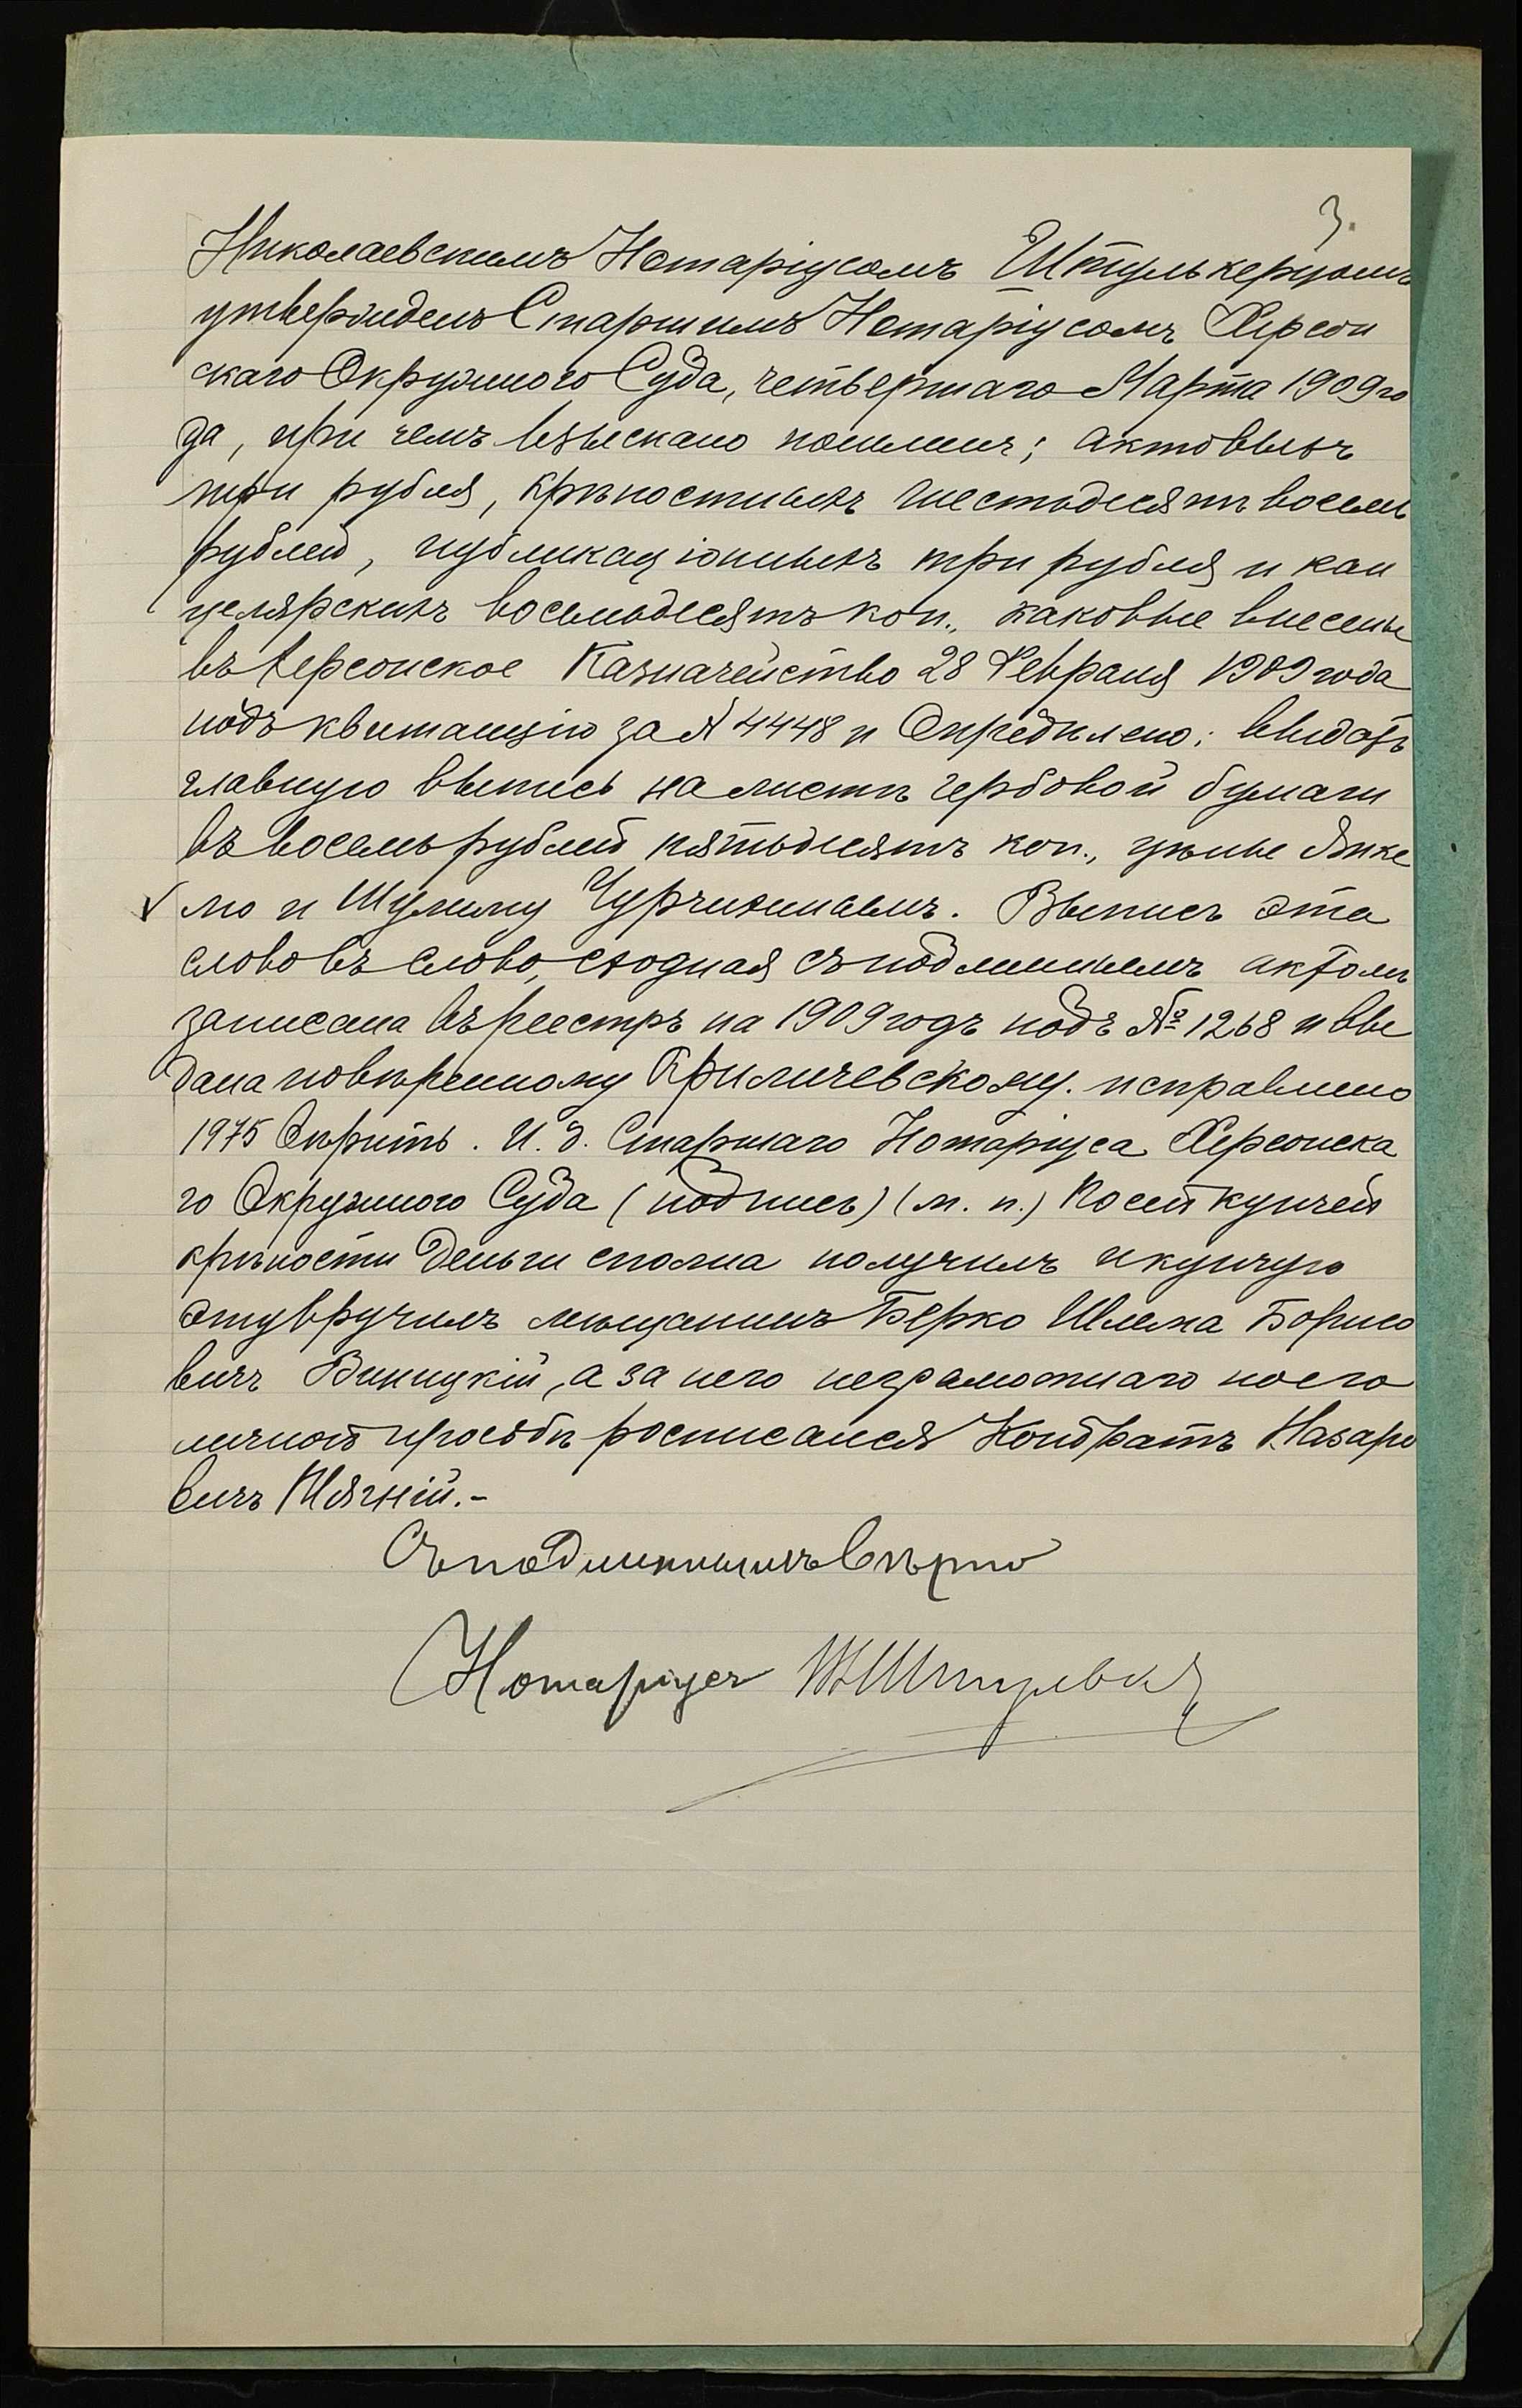 3.
Николаевскимъ Нотаріусомъ Штулькерцомъ
утвержденъ Старшимъ Нотаріусомъ Херсон
скаго Окружного Суда, четвертаго Марта 1909 го
да, при чемъ взыскано пошлинъ; актовыхъ
три рубля, крѣпостныхъ шестьдесятъ восемь
рублей, публикаціонныхъ три рубля и кан
целярскихъ восемьдесятъ коп., каковые внесены
въ Херсонское Казначейство 28 Февраля 1909 года
подъ квитанцію за № 4448 и Опредѣлено: выдать
главную выпись на листѣ гербовой бумаги
въ восемь рублей пятьдесятъ коп., цѣны Янке
лю и Шулиму Чурчихинымъ. Выпись эта
слово въ слово, сходная съ подлиннымъ актомъ
записана въ реестръ на 1909 годъ подъ № 1268 и вы
дана повѣренному Криличевскому. исправлено
1975 Вѣрить. И. д. Старшаго Нотаріуса Херсонска
го Окружного Суда (подпись) (м. п.) По сей купчей
крѣпости деньги сполна получилъ и купчую
эту вручилъ мѣщанинъ Берко Шлема Борисо
вичъ Виницкій, а за него неграмотнаго по его
личной просьбѣ росписался Кондратъ Назаро
вичъ Шлягній.-
Съ подлиннымъ вѣрно
Нотаріусъ